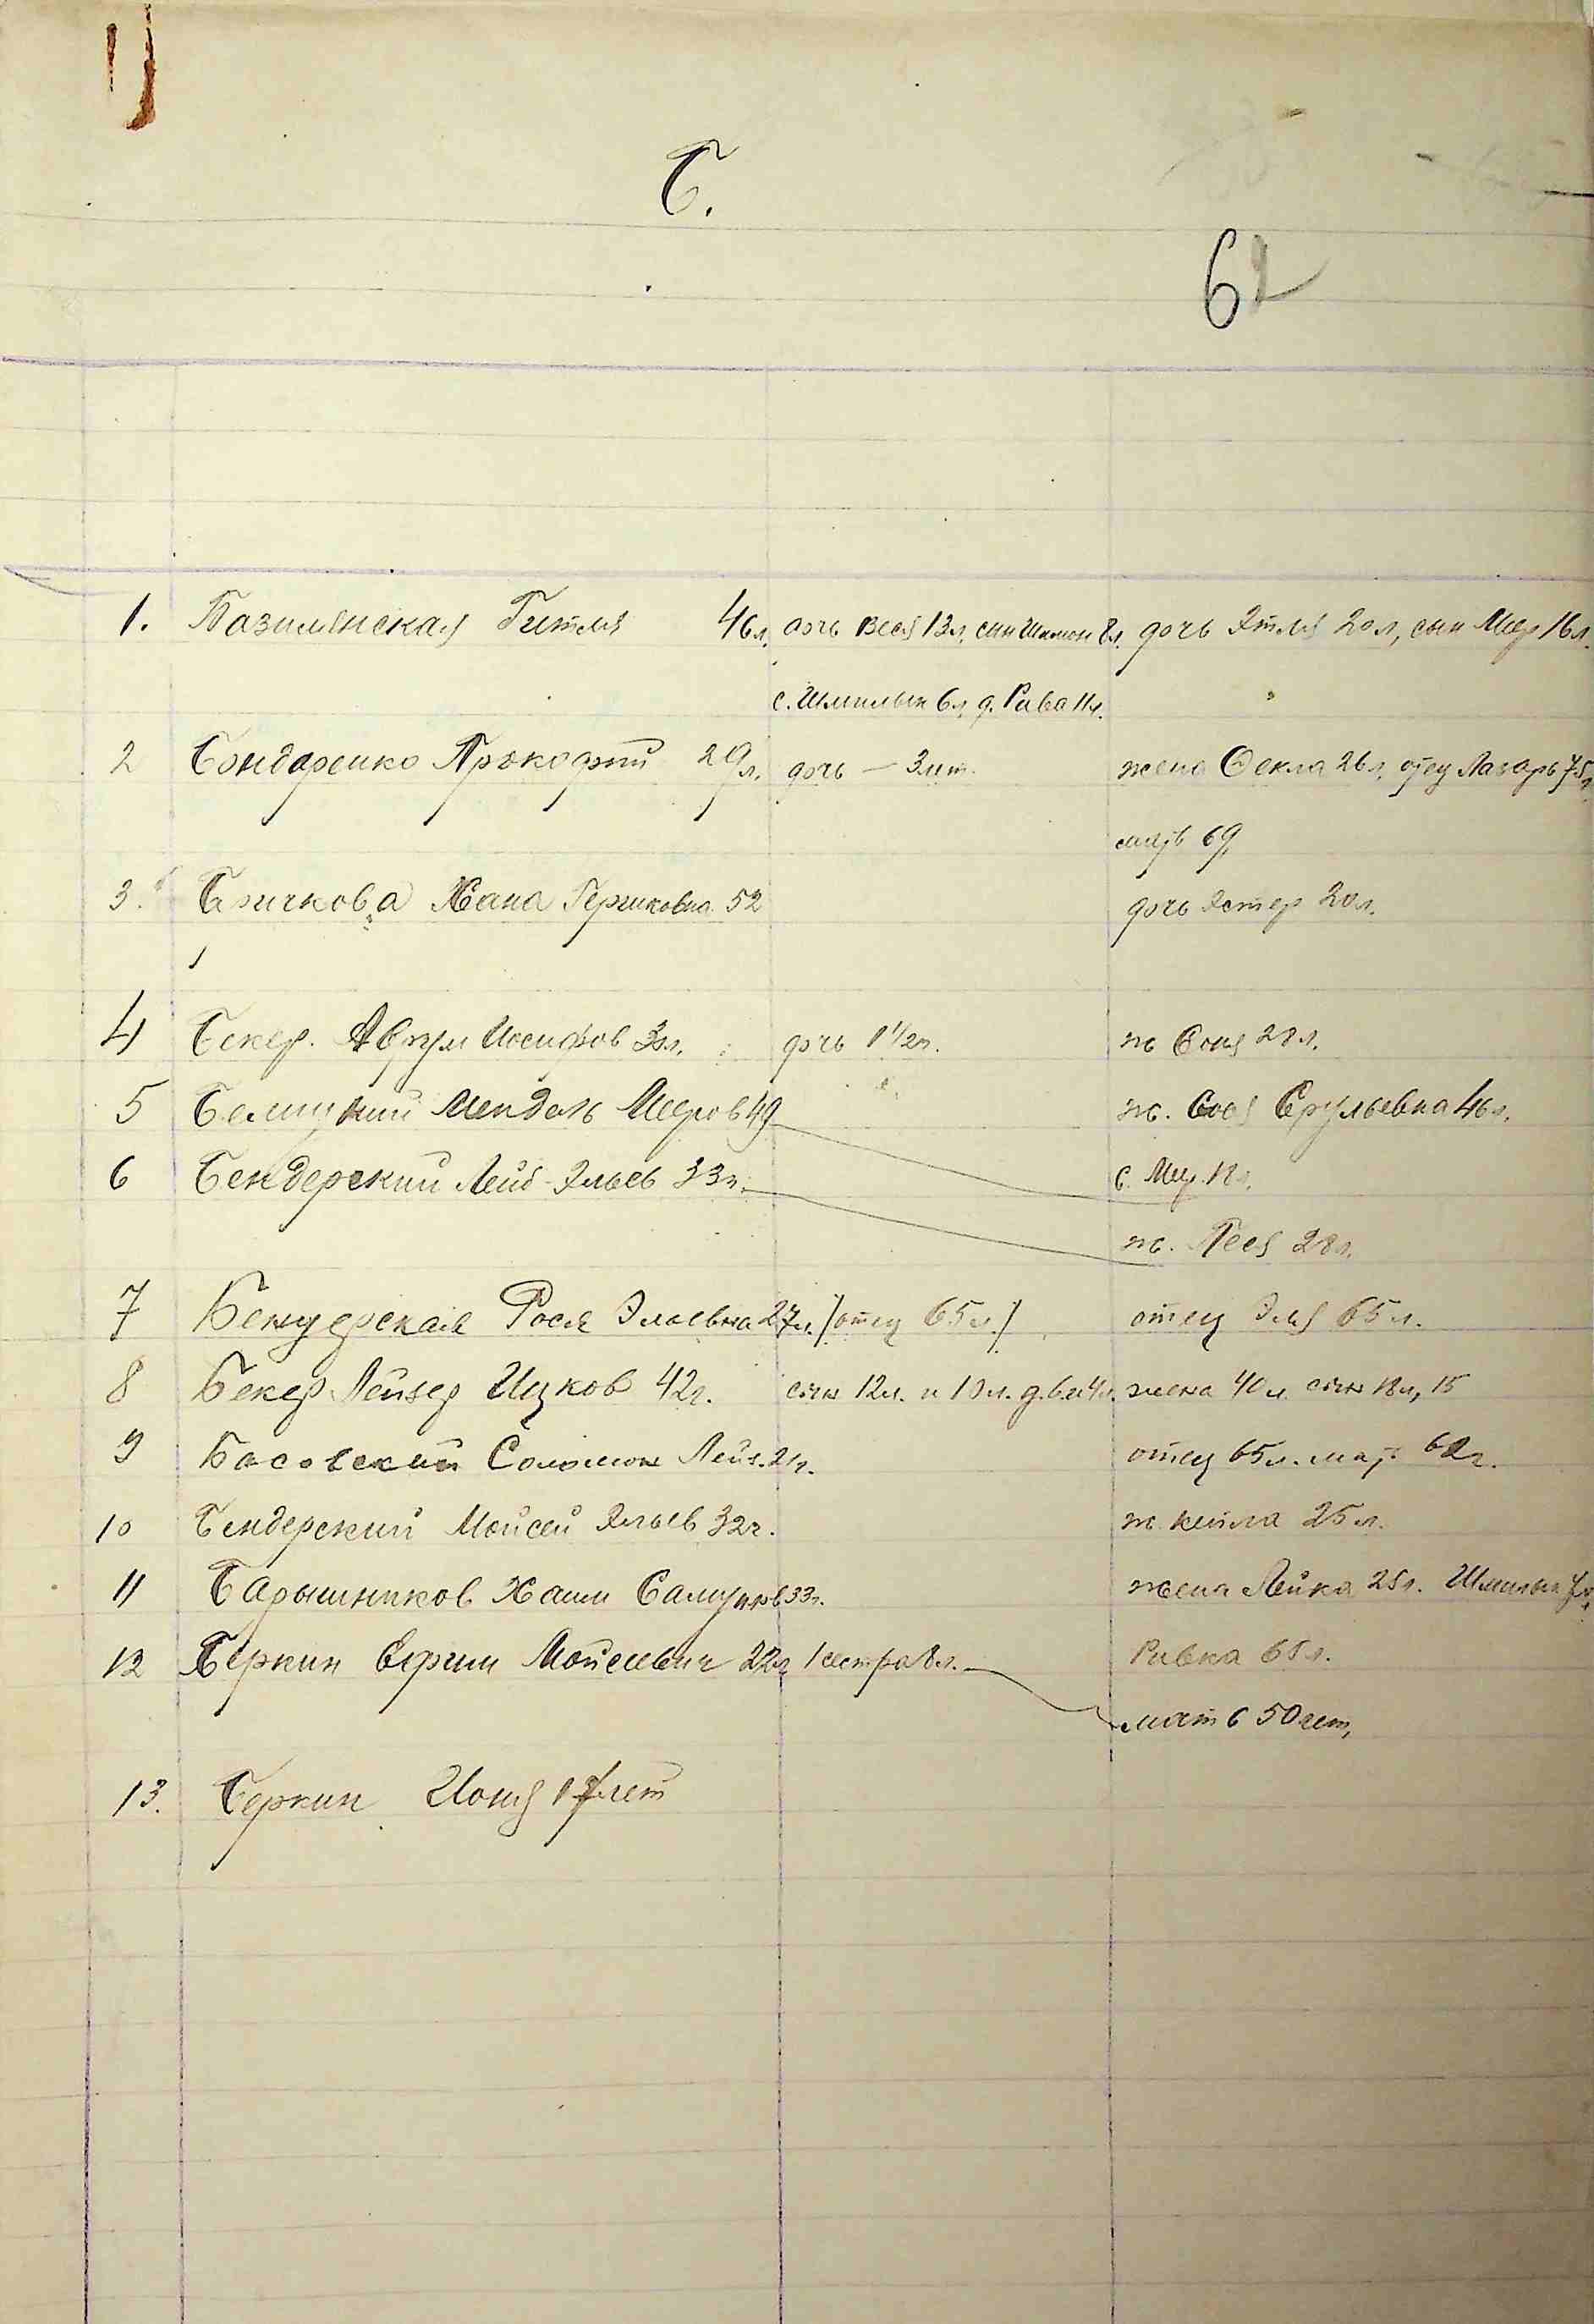 Б.
62
1. Базилянская Гитля 46 л. дочь Веся 13 л, сын Шимон 8 л. дочь Этля 20 л, сын Меер 16 л.
с. Шмилык 6 л, д. Рива 11 л.
2 Бондаренко Прокофий 29 л. дочь — 3 лет. жена Фекла 26 л, отец Лазарь 75 л
мать 69
3. Хана Гершковна 52 дочь Эстер 20 л.
4 Бекер. Аврум Иосифов 30 л. дочь 1 1/2 г. ж Соня 28 л.
5 Мендель Мееров 49 ж. Сося Срульевна 46 л.
6 Бендерский Лейб Эльев 33 г. с. 18 л.
ж. Песя 28 л.
7 Бендерская Рося Эльевна 27 л. /отец 65 л./ отец Эля 65 л.
8 Бекер Лейзер Ицков 42 г. сын 12 л. и 10 л. д. 6 и 4 л. жена 40 л. сын 18 л, 15
9 Басовский Соломон Лейз. 21 г. отец 65 л. мат. 62 г.
10 Бендерский Мойсей Эльев 32 г. ж. Кейла 25 л.
11 Барышников Хаим Самуилов 33 г. жена Лейка 25 л. Шмилык
12 Беркин Ефим Мойсеевич 22 г. 1 сестра 8 л. Ривка 65 л.
мать 50 лет,
13. Беркин Иона 17 лет